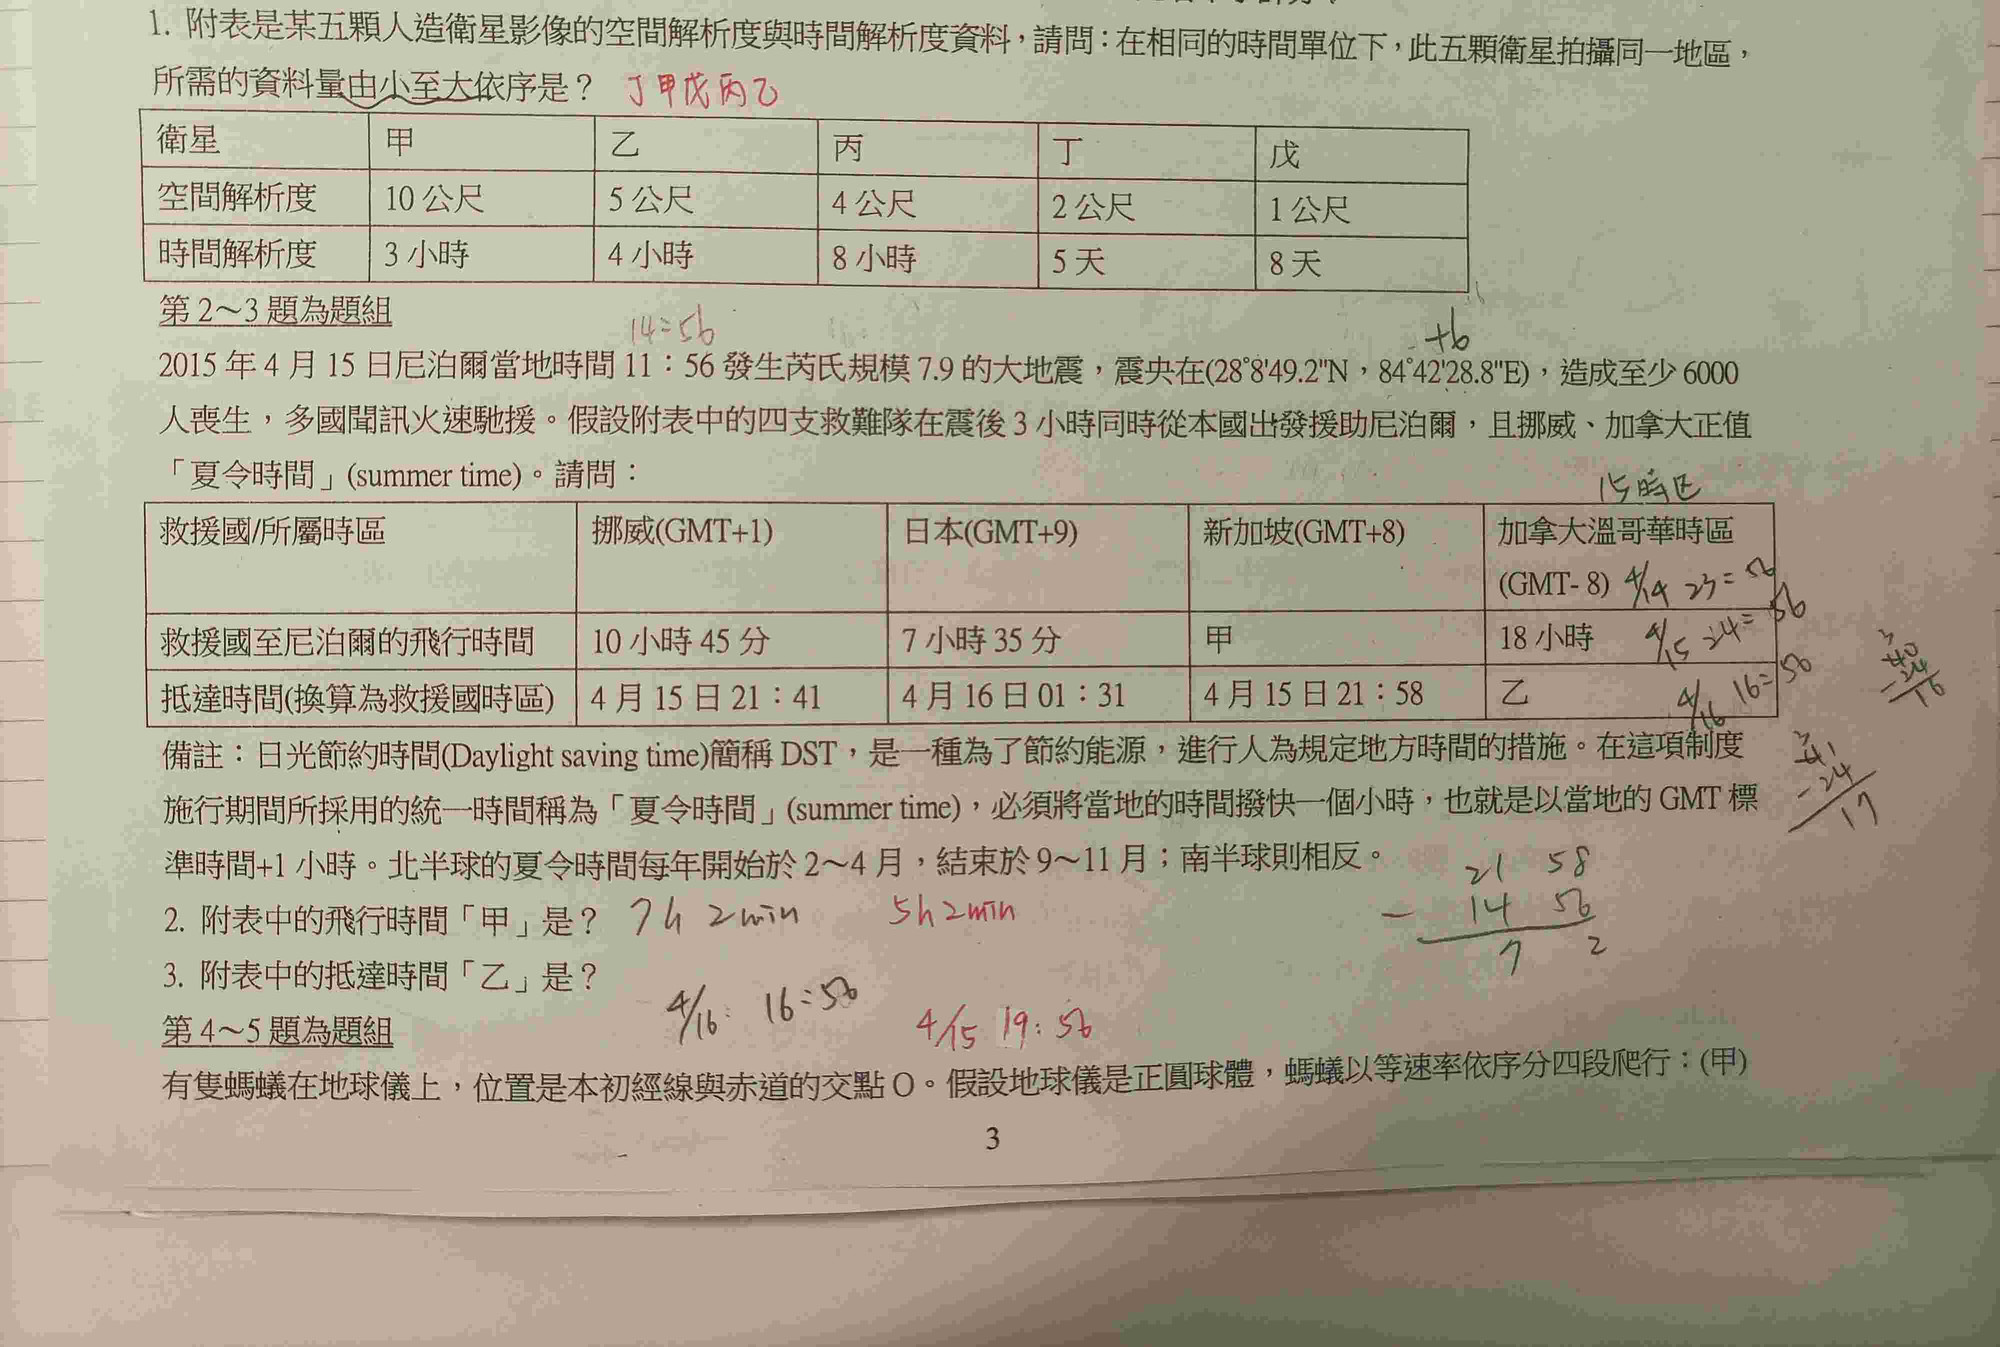 1. 附表是某五顆人造衛星影像的空間解析度與時間解析度資料，請問：在相同的時間單位下，此五顆衛星拍攝同一地區，
所需的資料量由小至大依序是？ 丁甲戊丙乙
衛星 甲 乙 丙 丁 戊
空間解析度 10公尺 5公尺 4公尺 2公尺 1公尺
時間解析度 3小時 4小時 8小時 5天 8天
第2～3題為題組
14:56
+6
2015年4月15日尼泊爾當地時間11：56發生芮氏規模7.9的大地震，震央在(28°8'49.2"N，84°42'28.8"E)，造成至少6000
人喪生，多國聞訊火速馳援。假設附表中的四支救難隊在震後3小時同時從本國出發援助尼泊爾，且挪威、加拿大正值
「夏令時間」(summer time)。請問：
15時区
救援國/所屬時區 挪威(GMT+1) 日本(GMT+9) 新加坡(GMT+8) 加拿大溫哥華時區
(GMT- 8) 4/14 23:56
救援國至尼泊爾的飛行時間 10小時45分 7小時35分 甲 18小時 4/15 24:56
抵達時間(換算為救援國時區) 4月15日21：41 4月16日01：31 4月15日21：58 乙 4/16 16:56
40
-24
16
備註：日光節約時間(Daylight saving time)簡稱DST，是一種為了節約能源，進行人為規定地方時間的措施。在這項制度
41
-24
17
施行期間所採用的統一時間稱為「夏令時間」(summer time)，必須將當地的時間撥快一個小時，也就是以當地的GMT標
準時間+1小時。北半球的夏令時間每年開始於2～4月，結束於9～11月；南半球則相反。
21 58
- 14 56
7 2
2. 附表中的飛行時間「甲」是？ 7h 2min 5h2min
3. 附表中的抵達時間「乙」是？
4/16 16:56 4/15 19:56
第4～5題為題組
有隻螞蟻在地球儀上，位置是本初經線與赤道的交點O。假設地球儀是正圓球體，螞蟻以等速率依序分四段爬行：(甲)
3